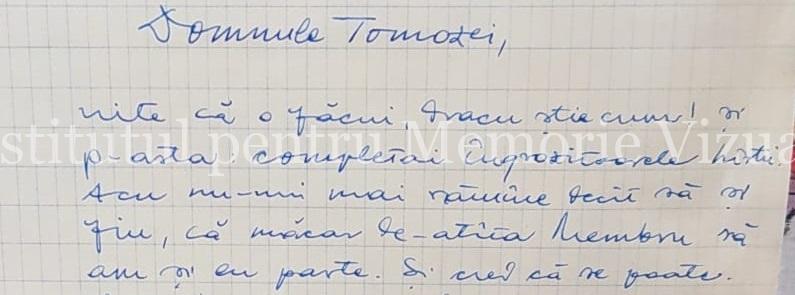 Domnule Tomozei,
uite că o făcui, dracu știe cum! și
stitutul pentru Memorie Vizua
p-asta: completai îngrozitoarele hîrtii.
Acu nu-mi mai rămîne decît să și
fiu, că măcar de-atîta Membru să
am și eu parte. Și cred că se poate.